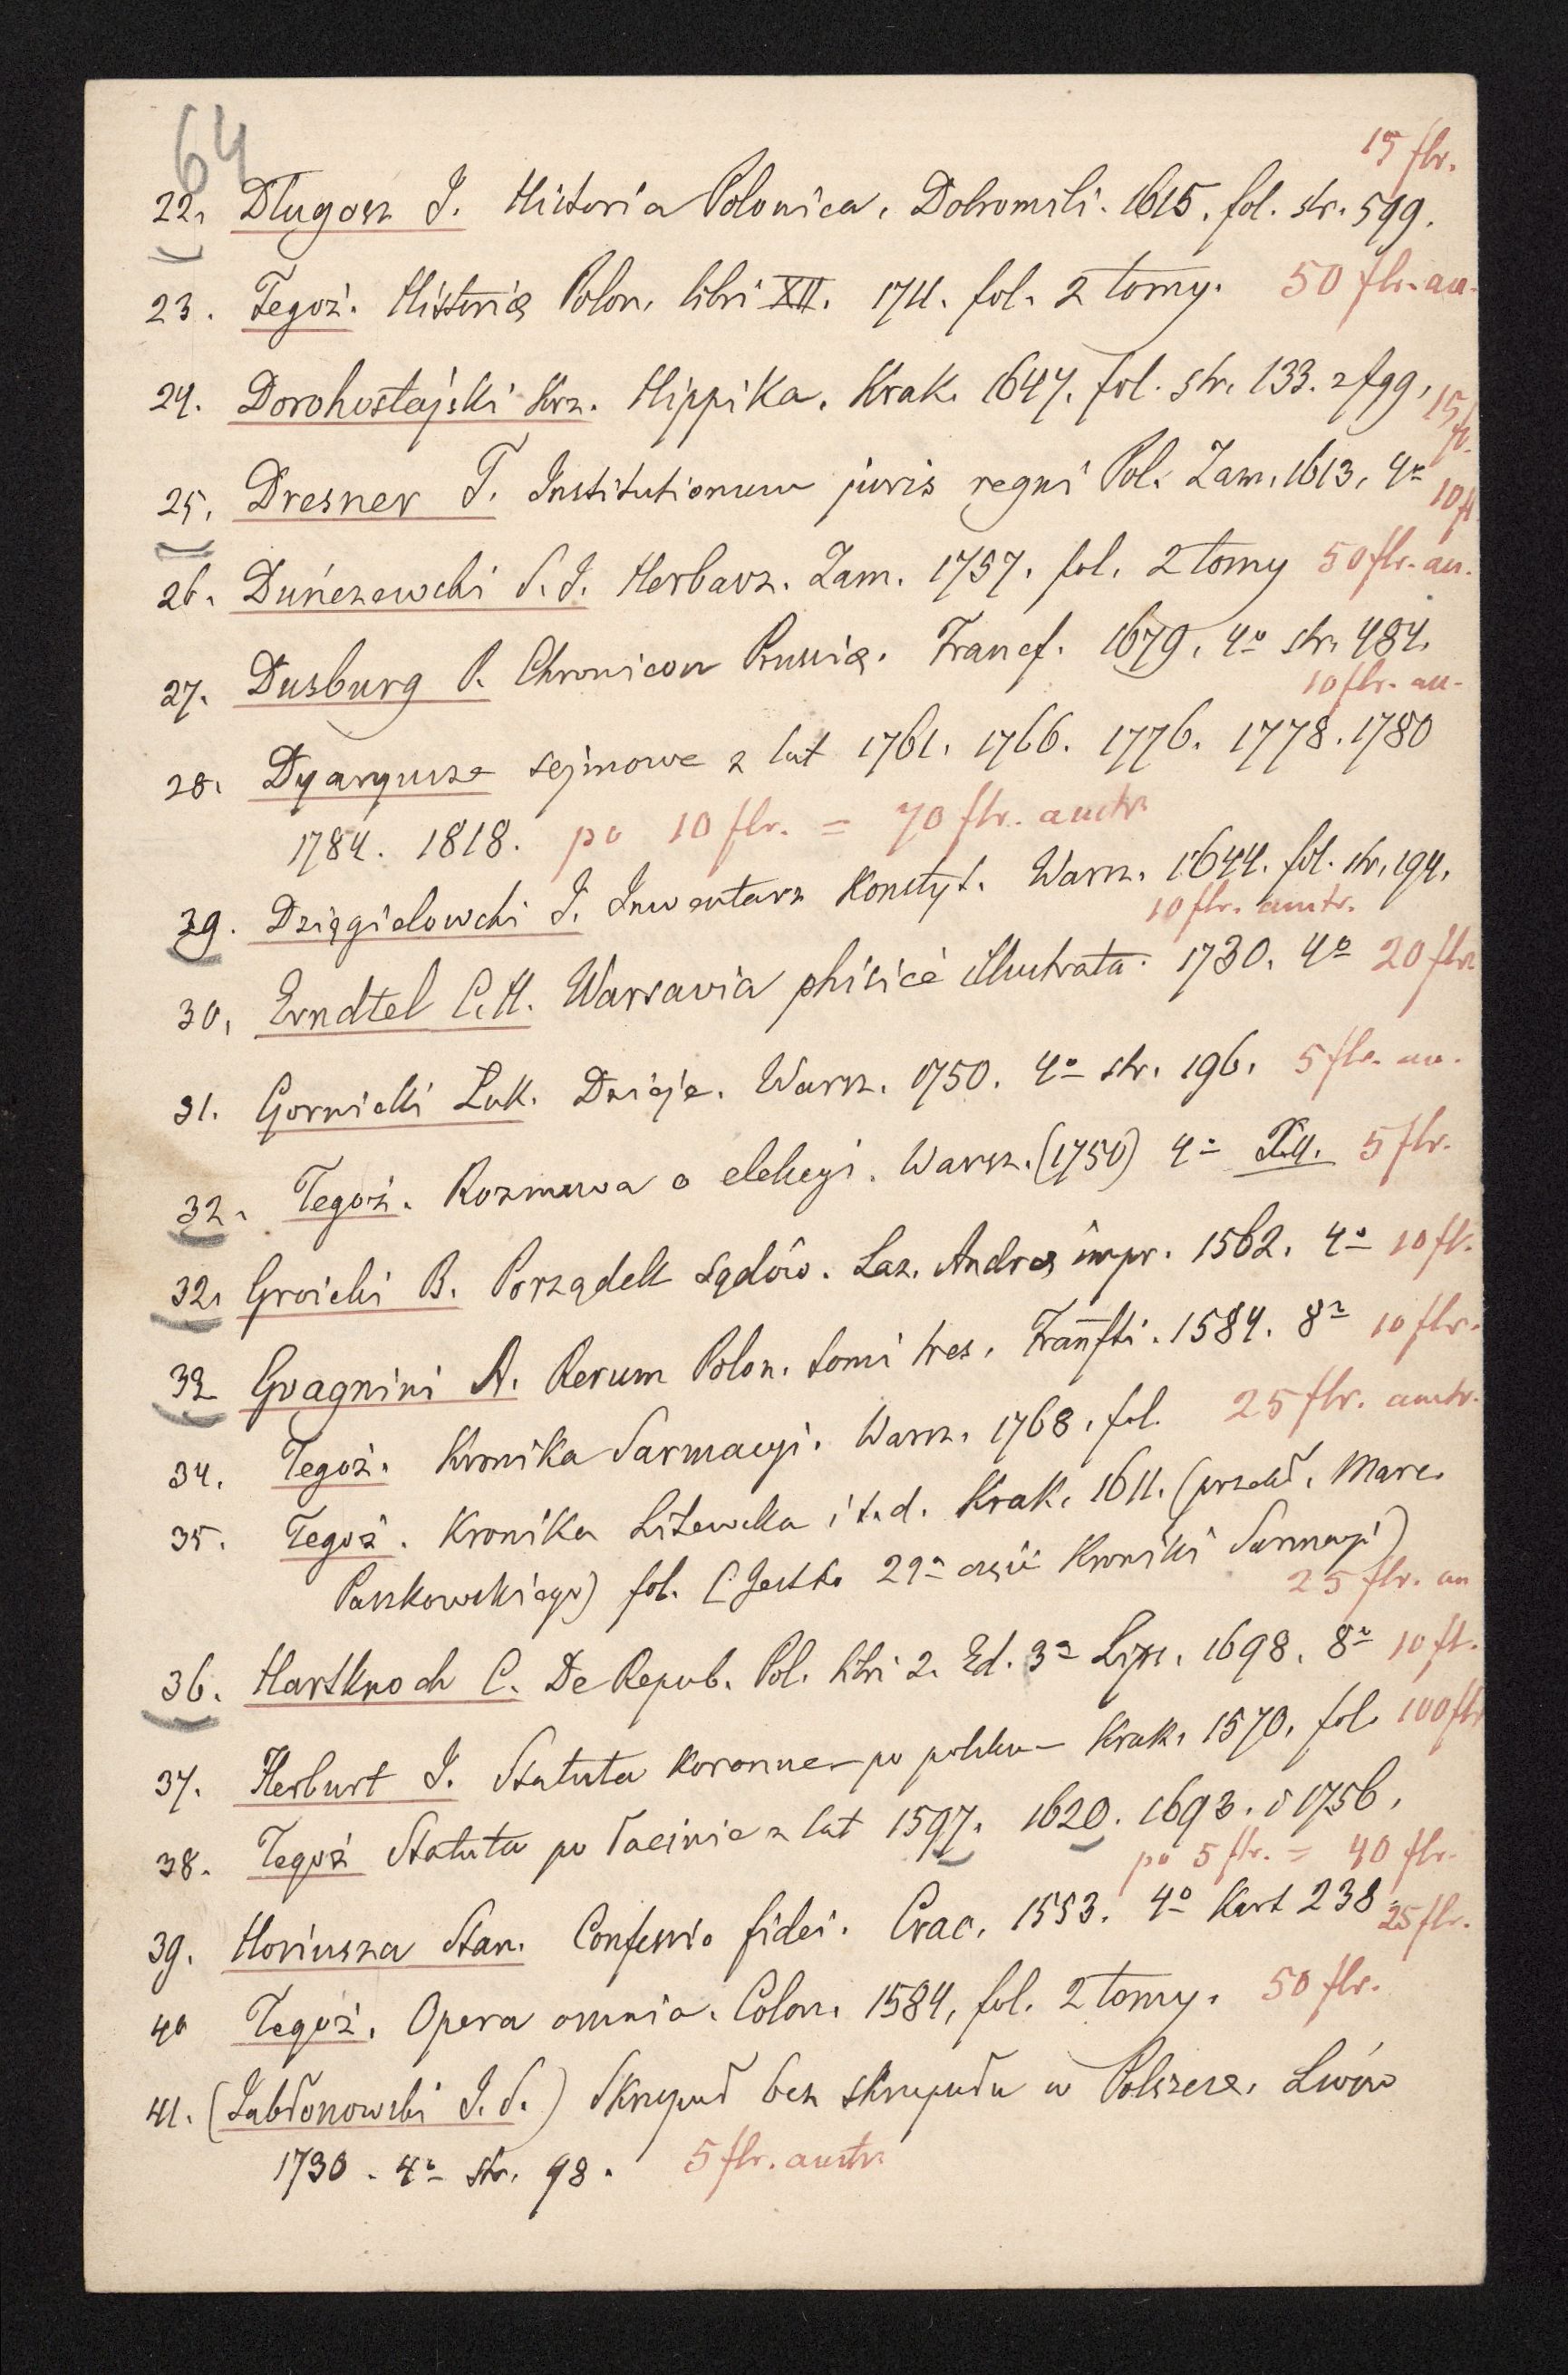 64
15 flr.
22. Długosz J. Historia Polonica. Dobromili. 1615. fol. str. 599.
23. Tegoż. Historiæ Polon. libri XII. 1711. fol. 2 tomy. 50 flr. au.
24. Dorohostajski Krz. Hippika. Krak. 1647. fol. str. 133. z fgg. 15 fl.
25. Dresner T. Institutionum juris regni Pol. Zam. 1613. 4º 10 fl
26. Duńczewski S. J. Herbarz. Zam. 1757. fol. 2 tomy 50 flr. au.
27. Dusburg P. Chronicon Prussiæ. Francf. 1679. 4º str. 484.
10 flr. au.
28. Dyaryusze sejmowe z lat 1761. 1766. 1776. 1778. 1780
1784. 1818. po 10 flr. = 70 flr. austr.
29. Dzięgielowski J. Inwentarz Konstyt. Warsz. 1644. fol. str. 194.
10 flr. austr.
30. Erndtel C. H. Warsavia phisicè illustrata. 1730. 4º 20 flr.
31. Gornicki Łuk. Dzieje. Warsz. 1750. 4º str. 196. 5 flr. au.
32. Tegoż. Rozmowa o elekcyi. Warsz. (1750) 4º 5 flr.
32. Groicki B. Porządek sądów. Laz. Andreæ impr. 1562. 4º 10 fl.
32 Gvagnini A. Rerum Polon. tomi tres. Francfti. 1584. 8º 10 flr.
34. Tegoż. Kronika Sarmacyi. Warsz. 1768. fol. 25 flr. austr.
35. Tegoż. Kronika Litewska i t. d. Krak. 1611. (przekł. Marc.
Paszkowskiego) fol. (Jest to 2ga część Kroniki Sarmacyi)
25 flr. au
36. Hartknoch C. De Repub. Pol. libri 2. Ed. 3a Lips. 1698. 8º 10 fl.
37. Herburt J. Statuta Koronne - po polsku - Krak. 1570. fol. 100 flr
38. Tegoż Statuta po łacinie z lat 1597. 1620. 1693. i 1756.
po 5 flr. = 40 flr.
39. Hoziusza Stan. Confessio fidei. Crac. 1553. 4º Kart 238 25 flr.
40 Tegoż. Opera omnia. Colon. 1584. fol. 2 tomy. 50 flr.
41. (Jabłonowski J. S.) Skrupuł bez skrupułu w Polszcze. Lwów
1730. 4º str. 98. 5 flr. austr.